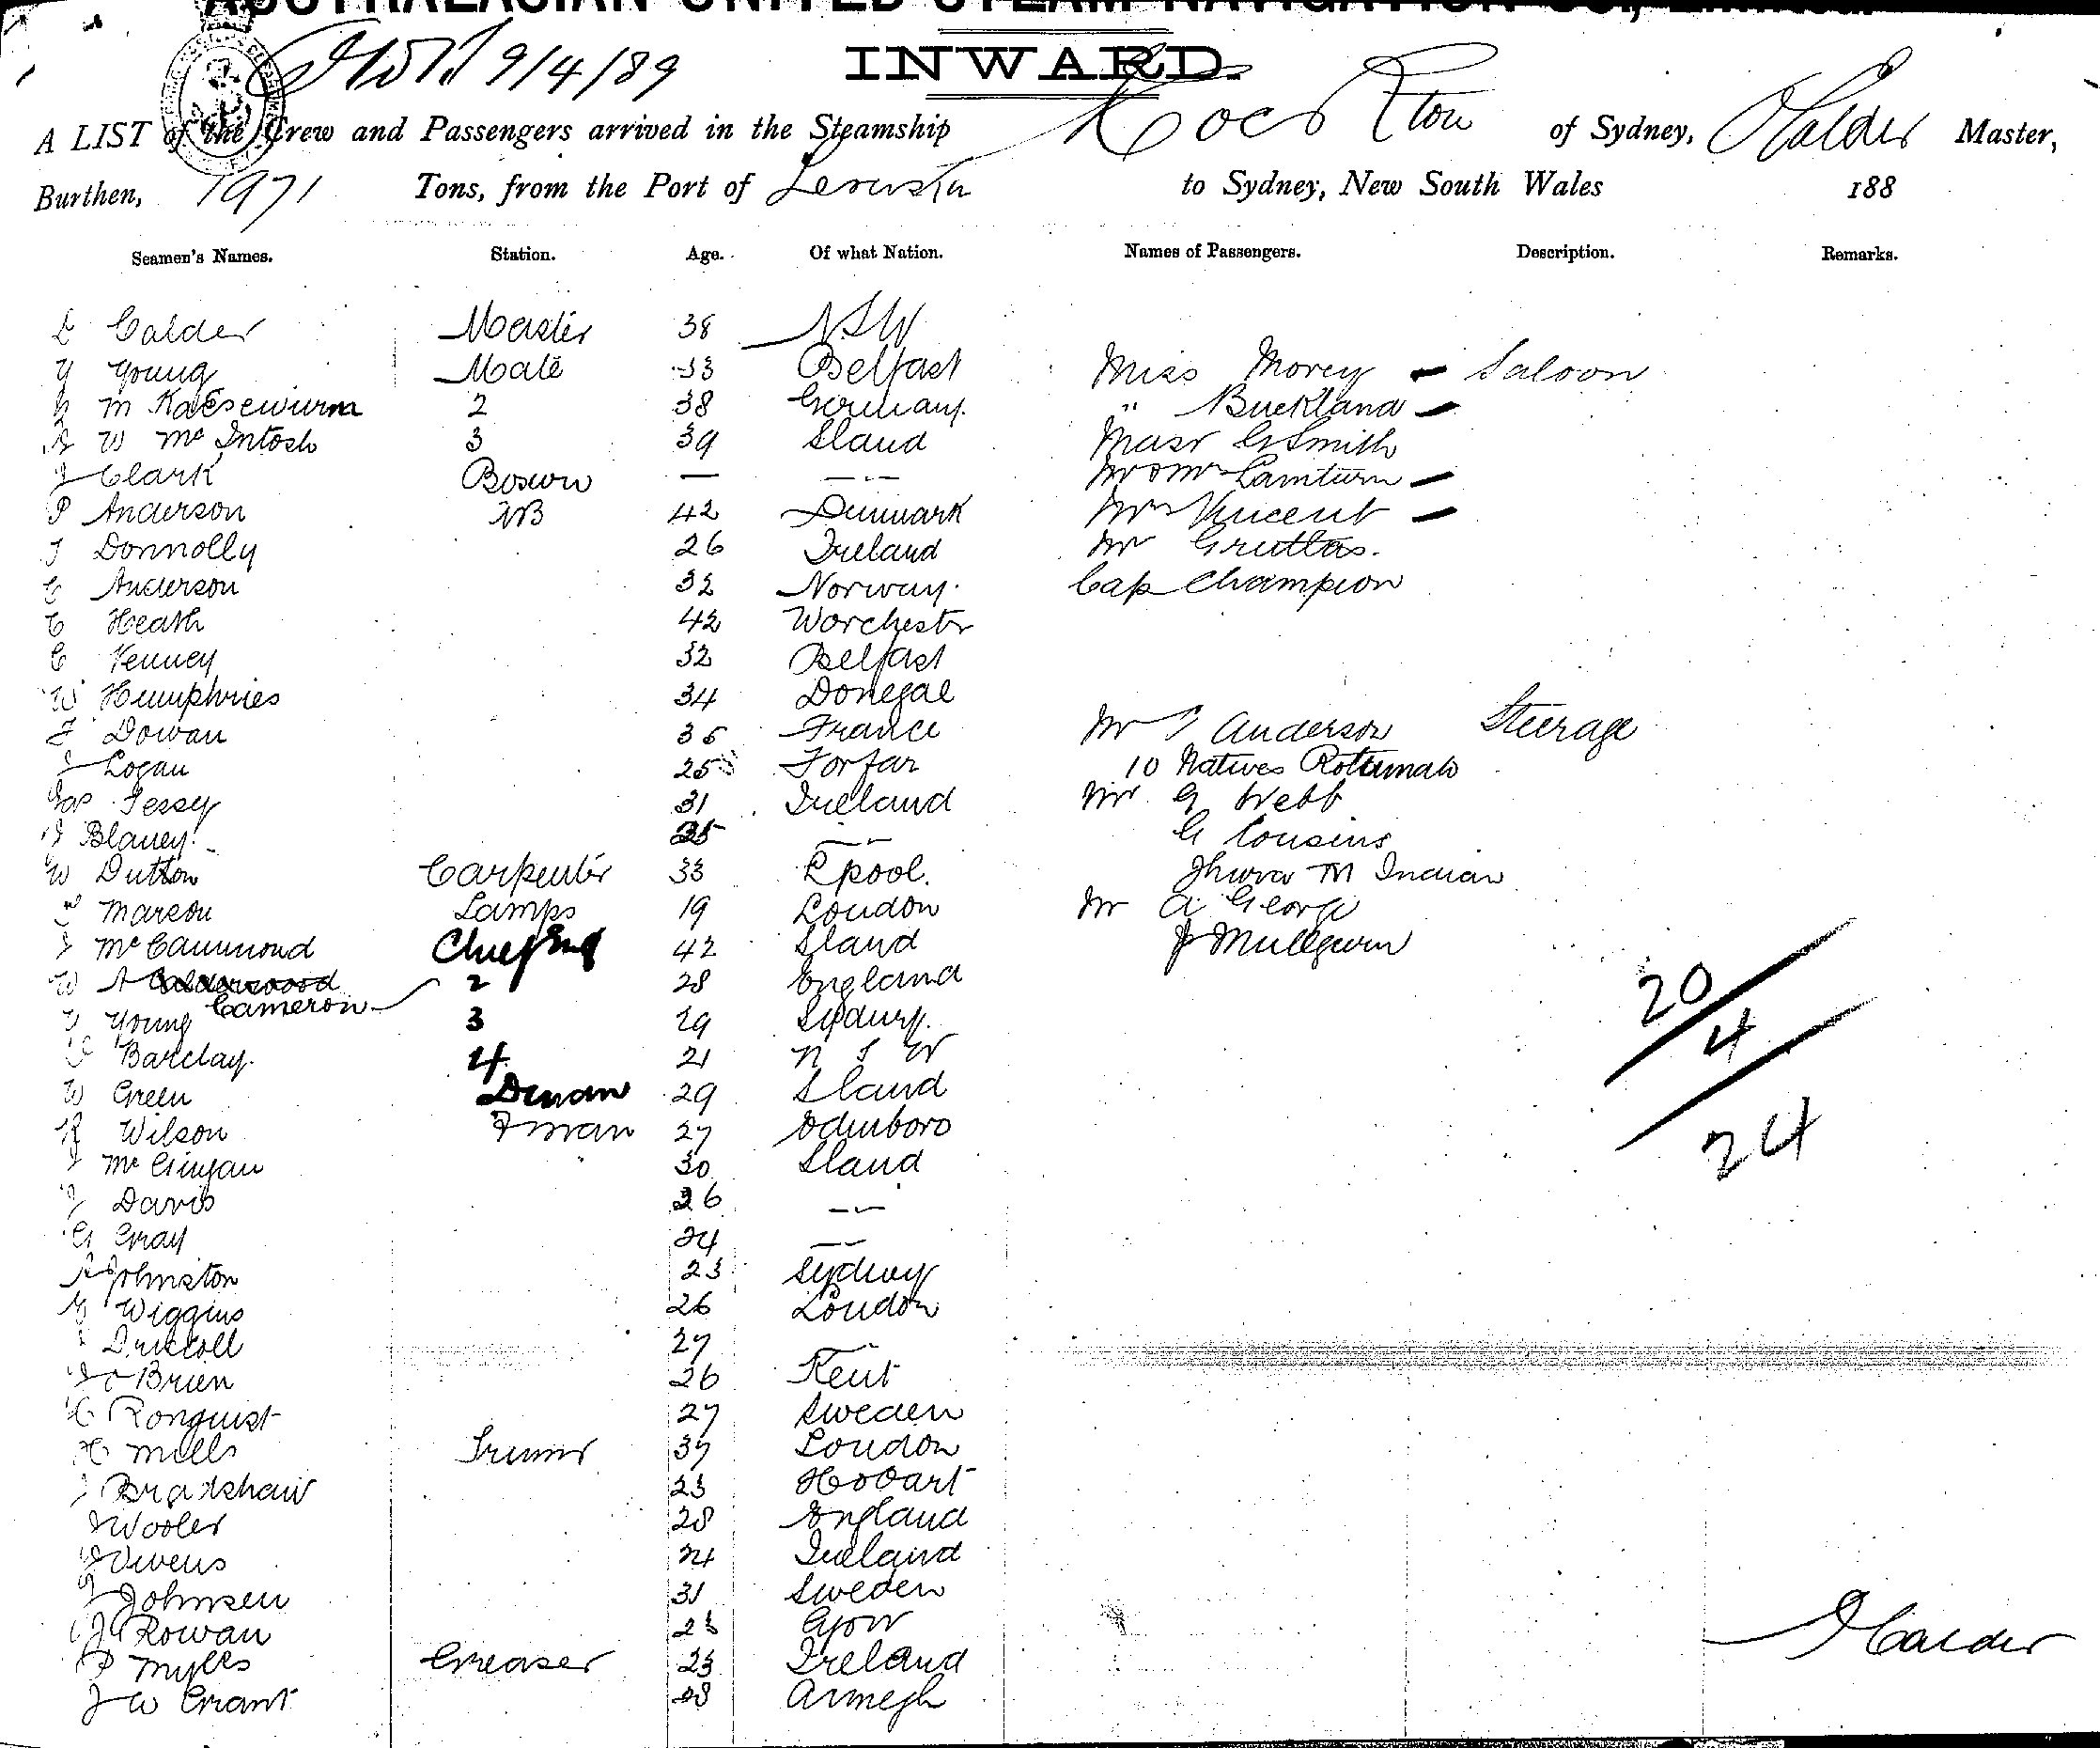 AUSTRALASIAN UNITED STEAM NAVIGATION CO., Limited.
INWARD.
9/4/89
A LIST of the Crew and Passengers arrived in the Steamship Rockton of Sydney, Calder Master,
Burthen, 1971 Tons, from the Port of Levuka to Sydney, New South Wales 188
Seamen's Names. Station. Age. Of what Nation. Names of Passengers. Description. Remarks.
Calder Master 38 NSW
Young Mate 33 Belfast Miss Morey - Saloon
M Kaesewurm 2 38 Germany. " Buckland -
W McIntosh 3 39 Sland Masr G Smith
J Clark Bosun — -- Lamturn -
P Anderson AB 42 Denmark Mrs Vincent -
J Donnolly 26 Ireland Mr
C Anderson 32 Norway. Cap Champion
C Heath 42 Worchestr
C Kenney 32 Belfast
W Humphries 34 Donegal
F Dowan 36 France Mr Anderson Steerage
Logan 25 Forfar 10 Natives Rotumah
Jas Fessey 31 Ireland Mr G Webb
J Blaney. 35 -- G Cousins
W Dutton Carpenter 33 Lpool. M Indian
Marcon Lamps 19 London Mr A George
J McCammond Chief Eng 42 Sland J
W A Calderwood 2 28 England
Cameron
Young 3 29 Sydney. 20
Barclay. 4 21 N S W 4
W Green Dman 29 Sland 24
R Wilson Fman 27 Edinboro
J 30 Sland
J Davis 26 --
G Gray 24 --
A Johnston 23 Sydney
G Wiggins 26 London
Driscoll 27 --
J O Brien 26 Kent
C Ronquist 27 Sweden
H Mills Trimr 37 London
J Bradshaw 23 Hobart
J Wooler 28 England
J Owens 24 Ireland
J Johnsen 31 Sweden
J Rowan 23
P Myles Greaser 23 Ireland Calder
J W Grant 28 Armegh